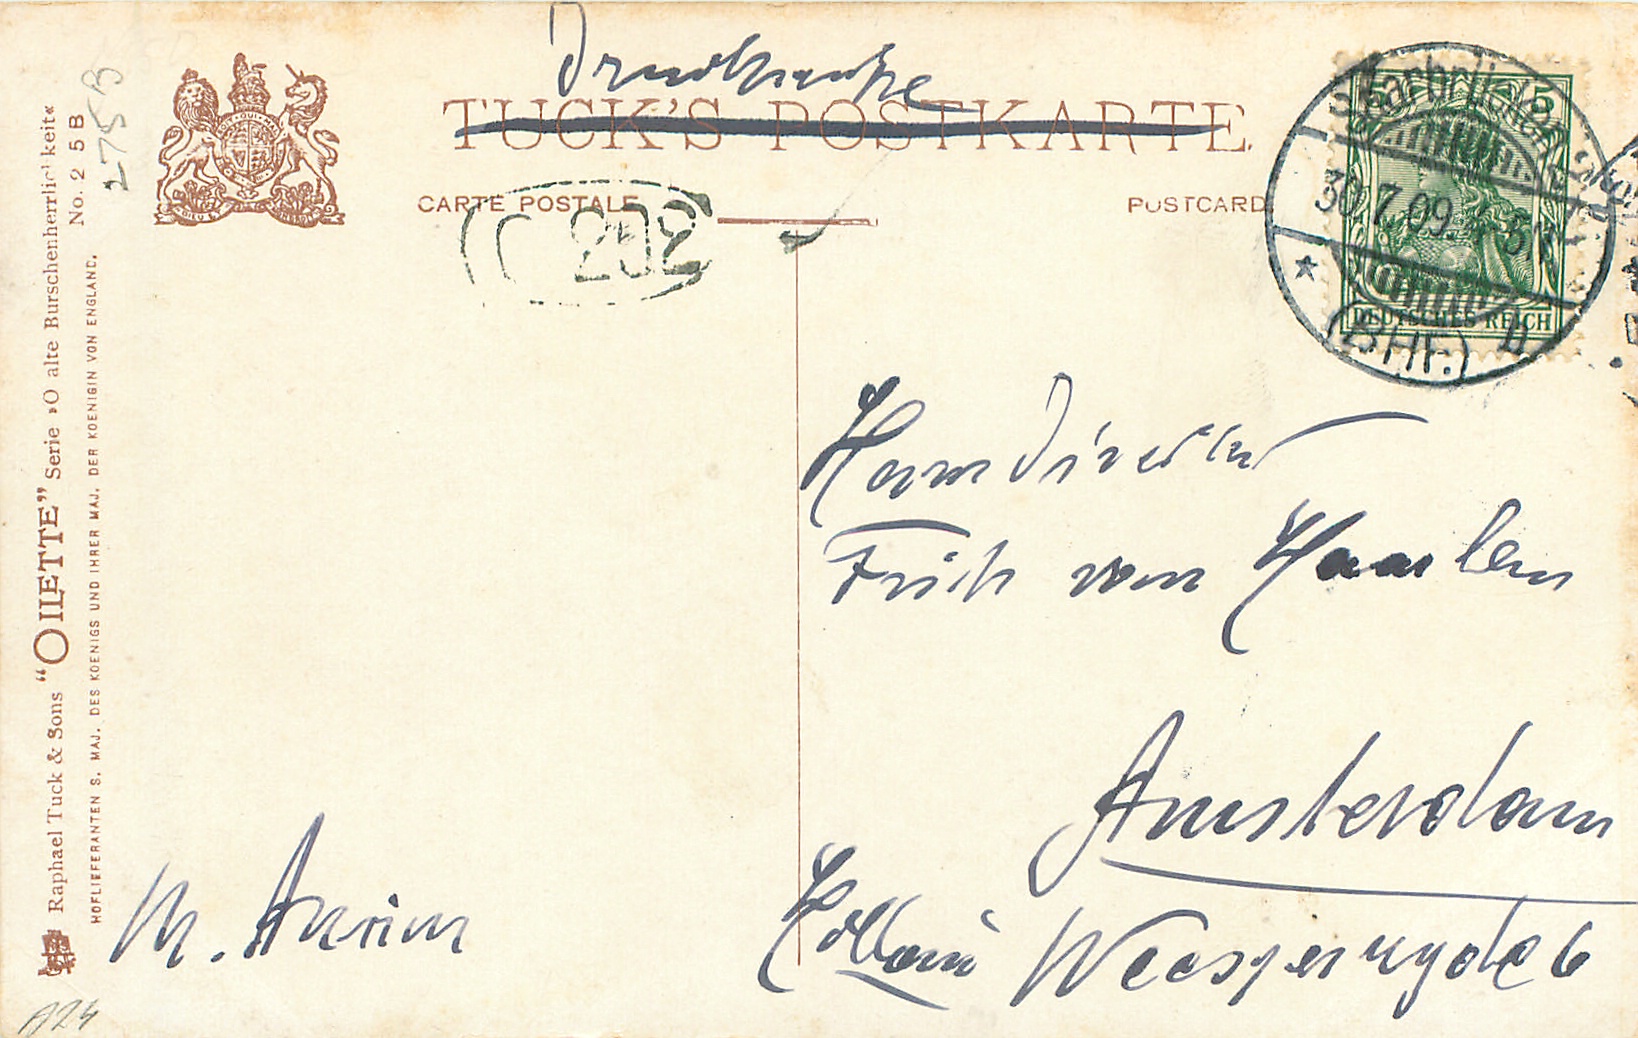 Drucksache
TUCK'S POSTKARTE
CARTE POSTALE
POSTCARD
C 202
Saarbrücken
30.7.09. 4-5N
(BHf.) II
DEUTSCHES REICH
Herrn Director
Frich van Haarlem
Amsterdam
Holland Weesperzyde 6
Raphael Tuck & Sons “OILETTE” Serie »O alte Burschenherrlichkeit« No. 2 5 B
HOFLIEFERANTEN S. MAJ. DES KOENIGS UND IHRER MAJ. DER KOENIGIN VON ENGLAND.
275B
A24